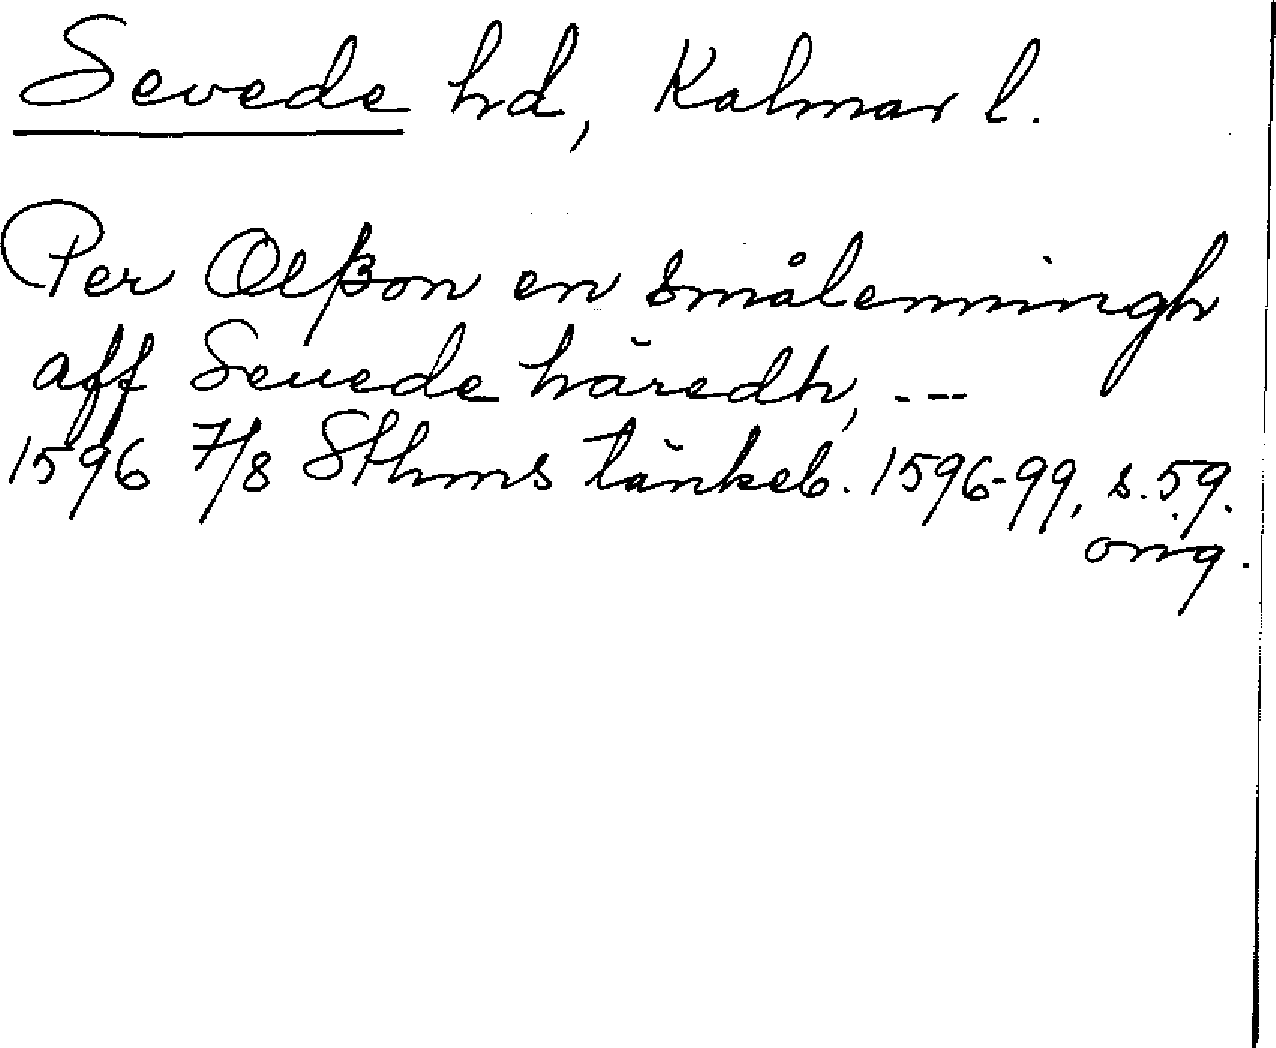 Sevede hd, Kalmar l.
Per Olßon en smålenningh
aff Seuede häredh, ---
1596 7/8 Sthms tänkeb. 1596-99, s. 59.
orig.